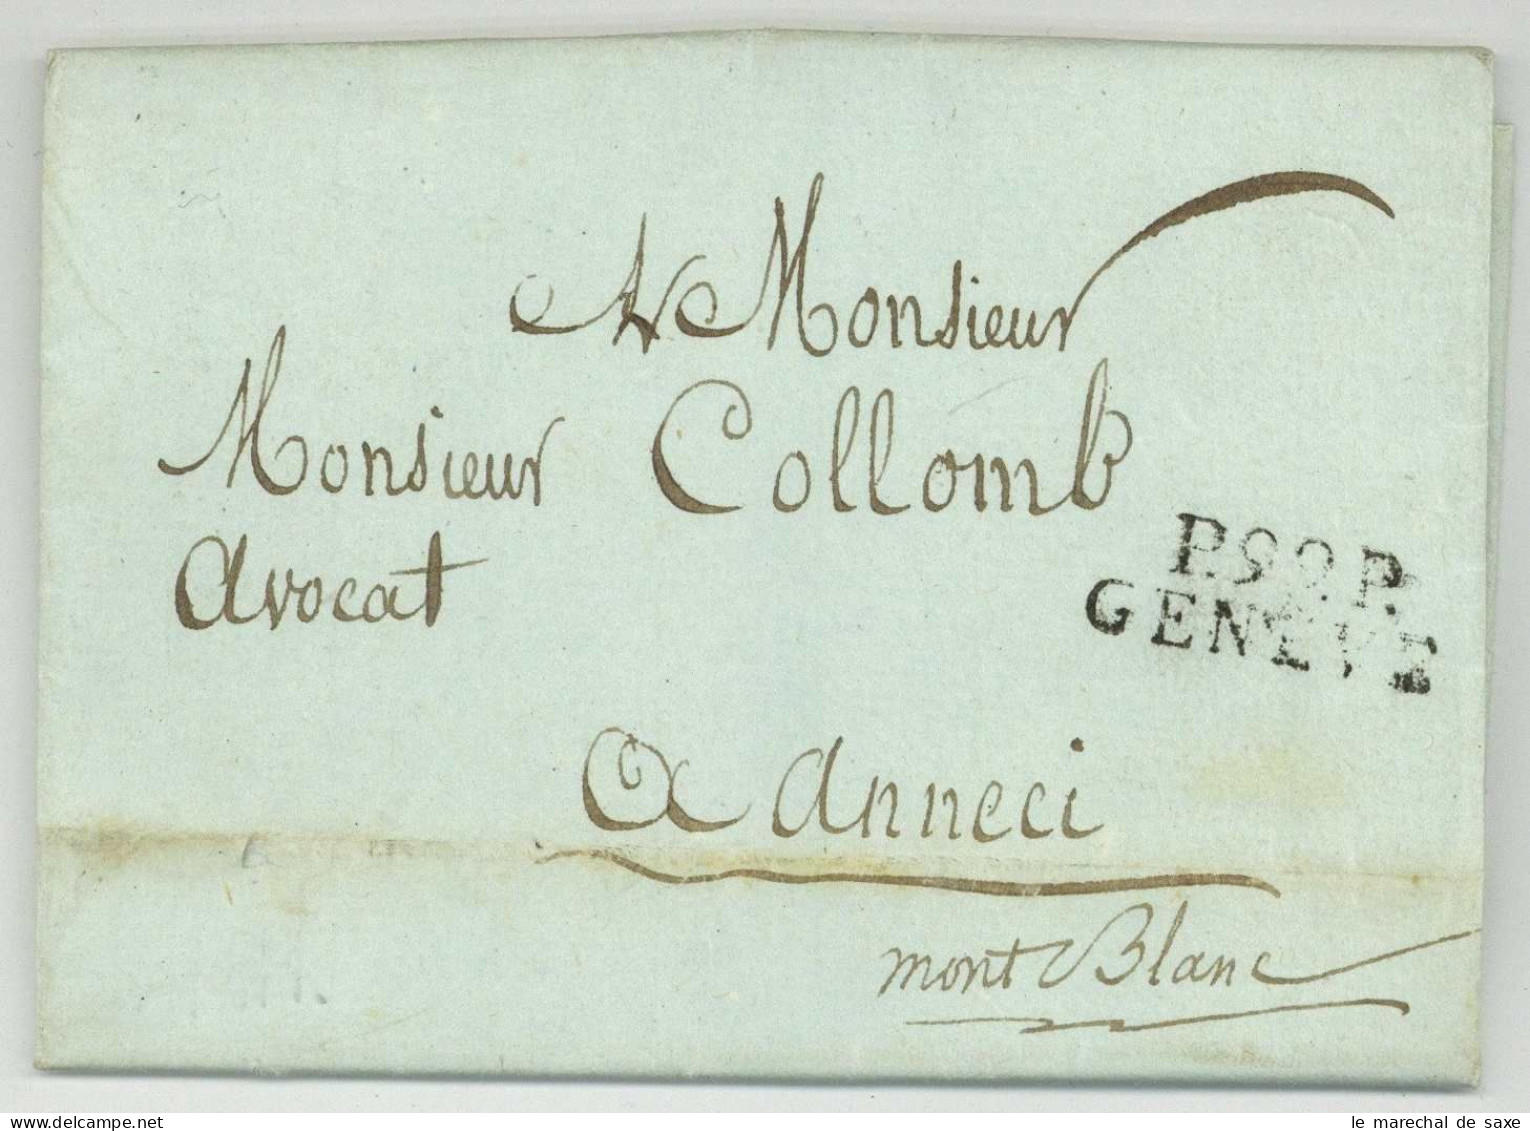 A Monsieur
Monsieur Collomb
Avocat
P.99.P.
GENEVE
A Anneci
mont Blanc
le marechal de saxe